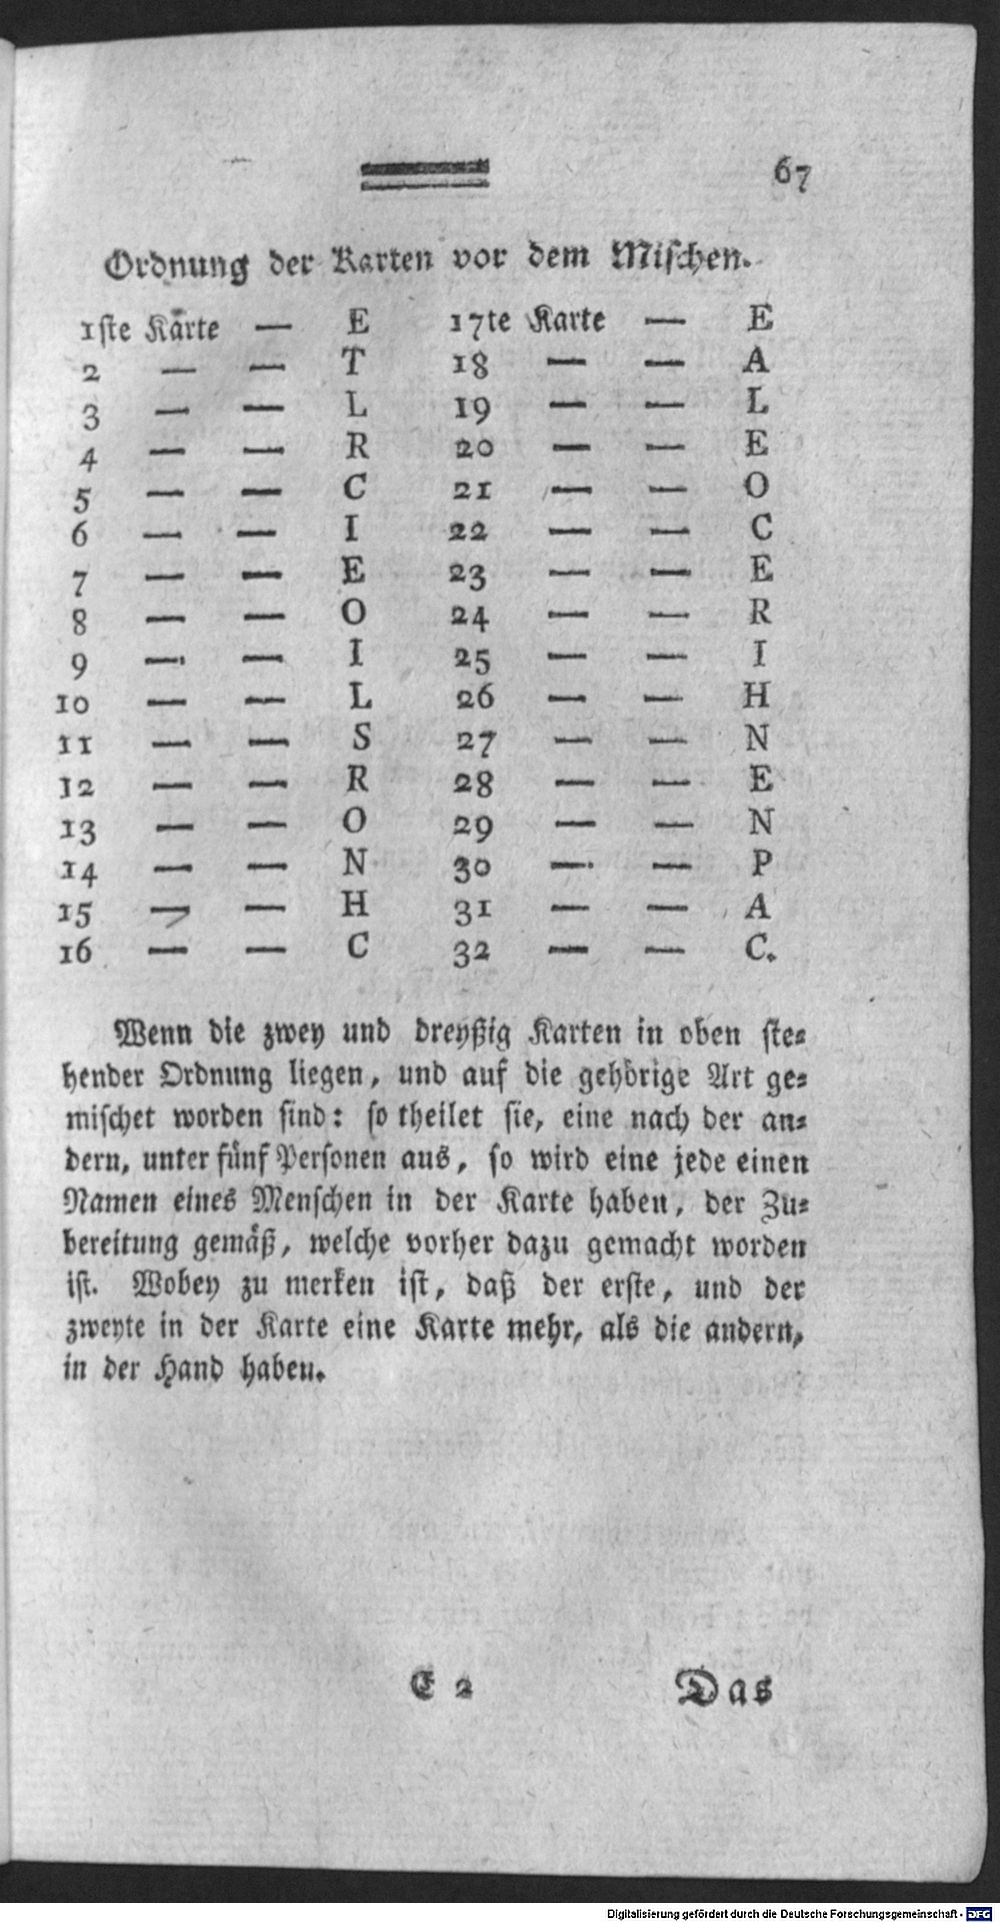 67
Ordnung der Karten vor dem Mischen.
1ste Karte — E 17te Karte — E
2 — — T 18 — — A
3 — — L 19 — — L
4 — — R 20 — — E
5 — — C 21 — — O
6 — — I 22 — — C
7 — — E 23 — — E
8 — — O 24 — — R
9 — — I 25 — — I
10 — — L 26 — — H
11 — — S 27 — — N
12 — — R 28 — — E
13 — — O 29 — — N
14 — — N 30 — — P
15 — — H 31 — — A
16 — — C 32 — — C.
Wenn die zwey und dreyßig Karten in oben ste-
hender Ordnung liegen, und auf die gehörige Art ge-
mischet worden sind: so theilet sie, eine nach der an-
dern, unter fünf Personen aus, so wird eine jede einen
Namen eines Menschen in der Karte haben, der Zu-
bereitung gemäß, welche vorher dazu gemacht worden
ist. Wobey zu merken ist, daß der erste, und der
zweyte in der Karte eine Karte mehr, als die andern,
in der Hand haben.
E 2 Das
Digitalisierung gefördert durch die Deutsche Forschungsgemeinschaft - DFG